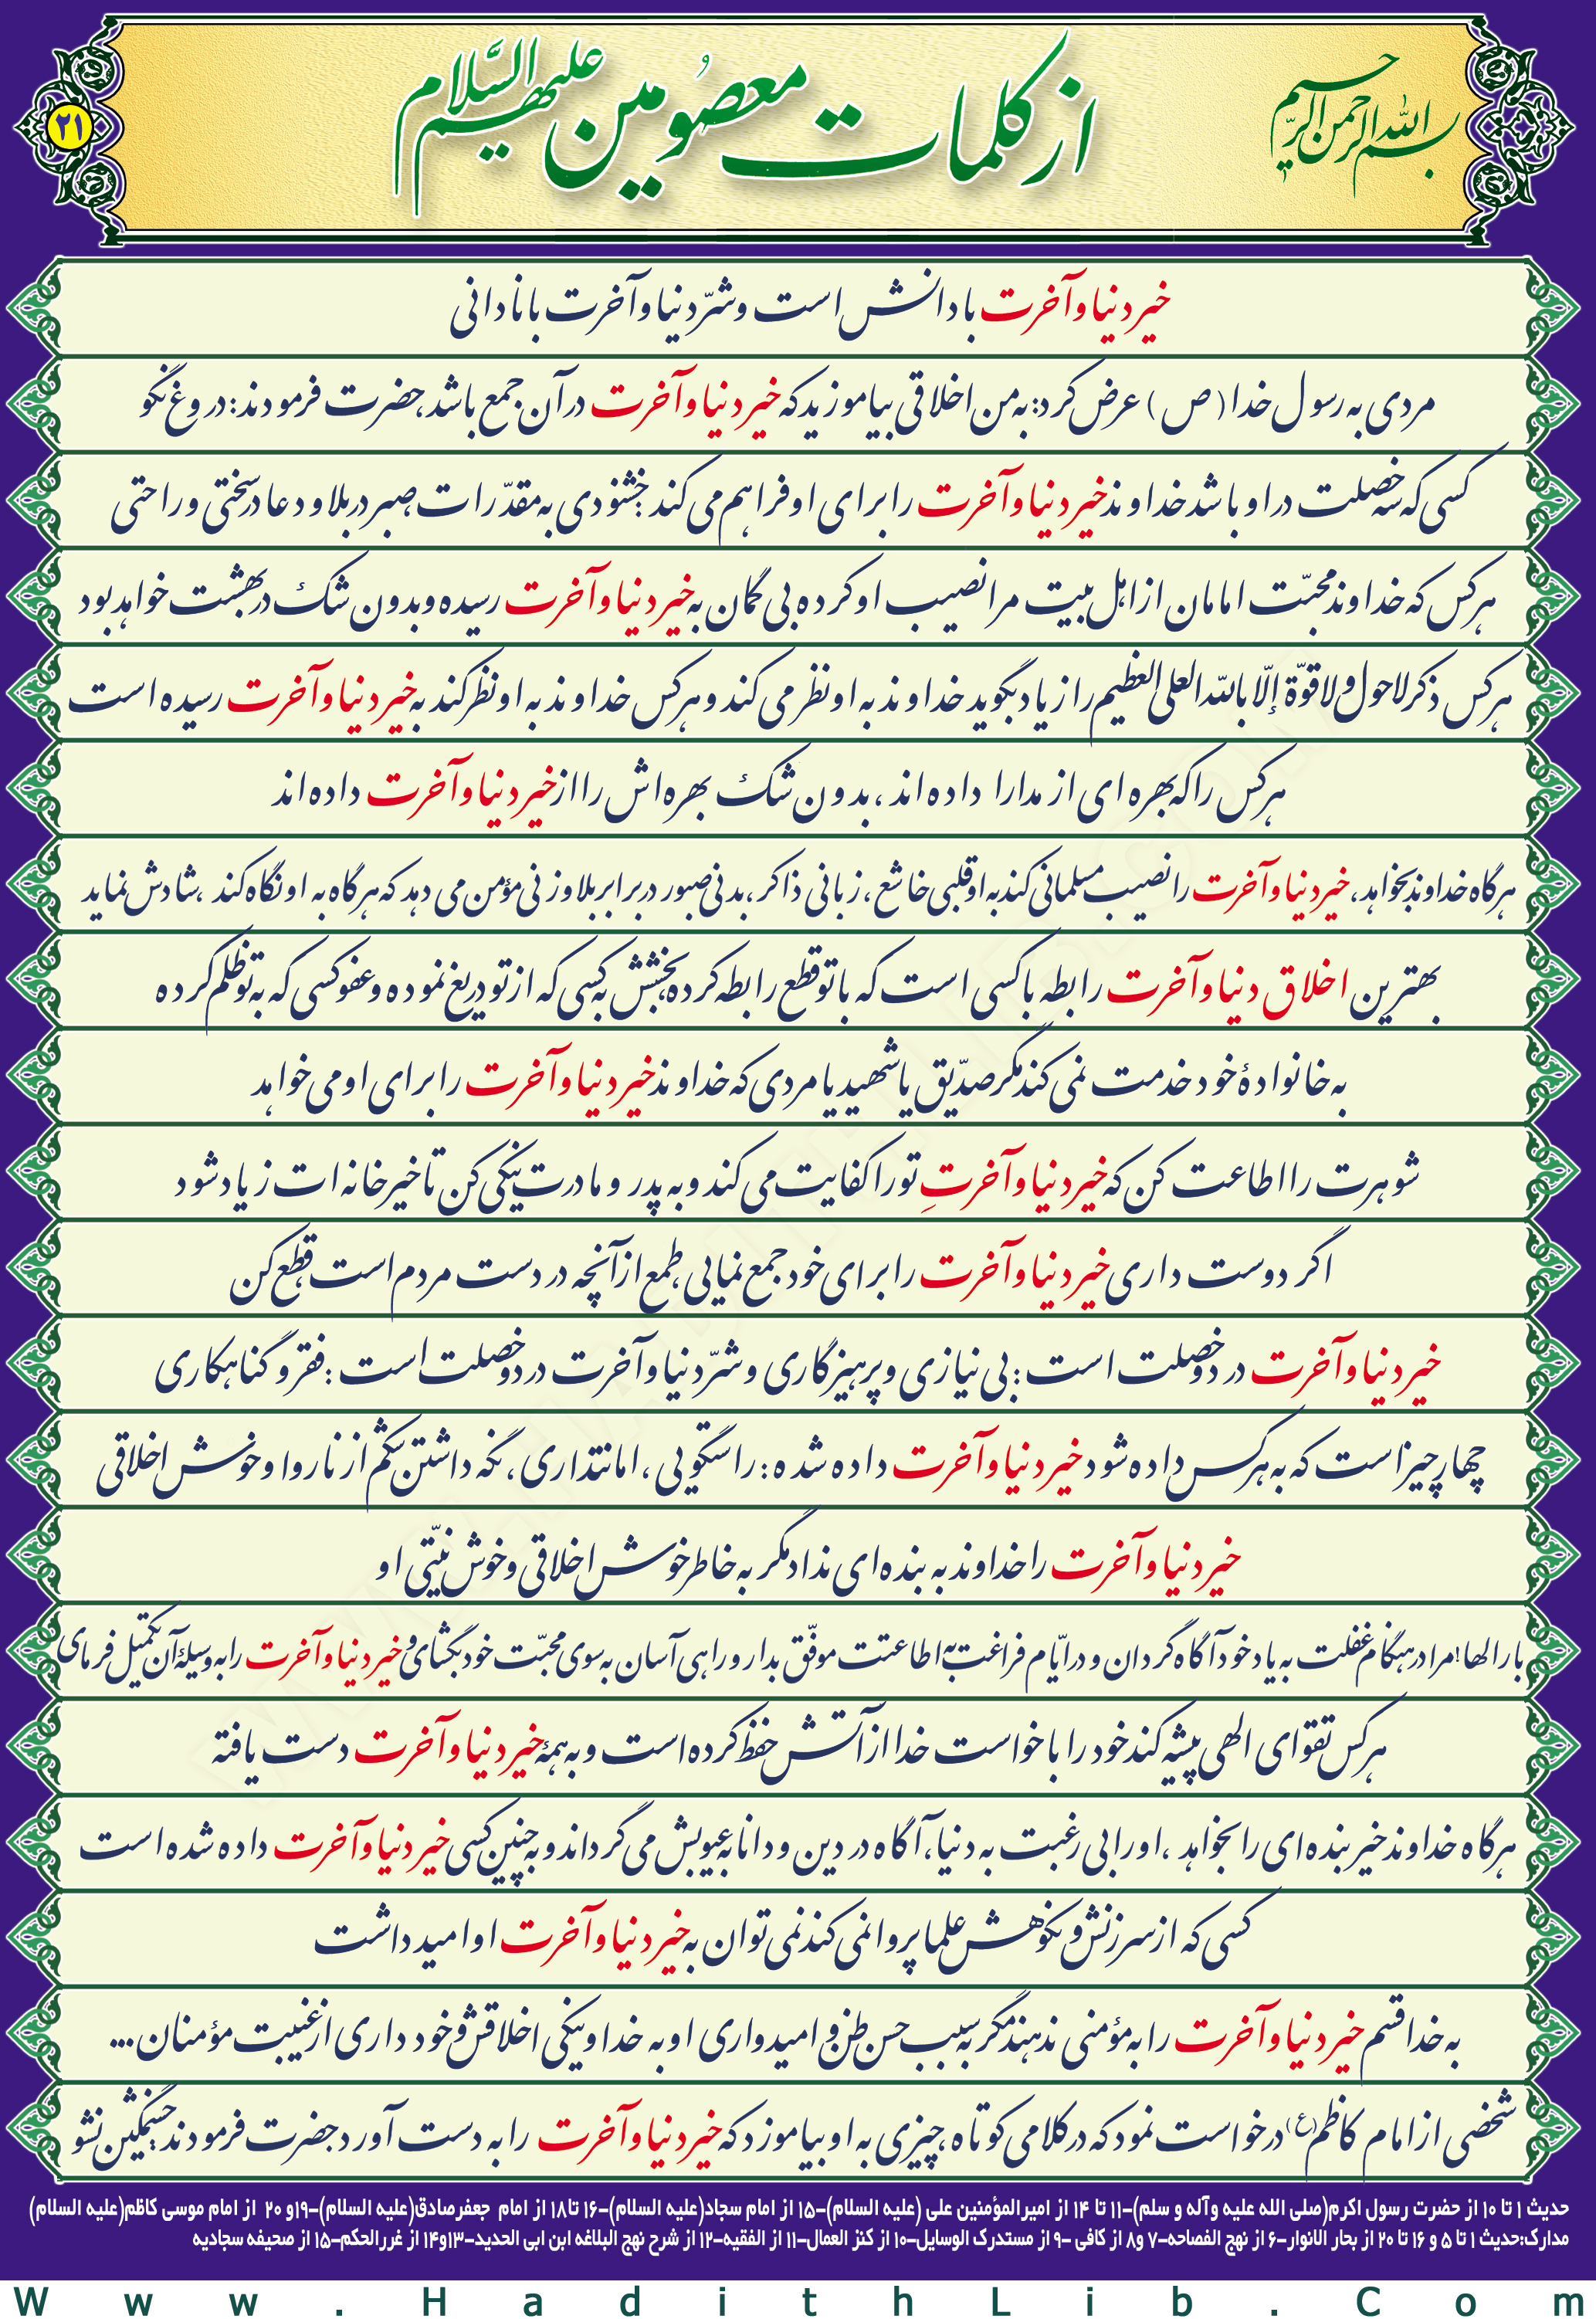 بسم الله الرحمن الرحیم
از کلمات معصومین علیهم السّلام
۲۱
خیر دنیا و آخرت با دانش است و شرّ دنیا و آخرت با نادانی
مردی به رسول خدا (ص) عرض کرد: به من اخلاقی بیاموزید که خیر دنیا و آخرت در آن جمع باشد، حضرت فرمودند: دروغ نگو
کسی که سه خصلت در او باشد خداوند خیر دنیا و آخرت را برای او فراهم می کند: خشنودی به مقدّرات، صبر در بلا و دعا در سختی و راحتی
هر کس که خداوند محبّت امامان از اهل بیت مرا نصیب او کرده بی گمان به خیر دنیا و آخرت رسیده و بدون شک در بهشت خواهد بود
هر کس ذکر لاحول ولا قوّة إلّا بالله العلی العظیم را زیاد بگوید خداوند به او نظر می کند و هر کس خداوند به او نظر کند به خیر دنیا و آخرت رسیده است
هر کس را که بهره ای از مدارا داده اند، بدون شک بهره اش را از خیر دنیا و آخرت داده اند
هرگاه خداوند بخواهد، خیر دنیا و آخرت را نصیب مسلمانی کند به او قلبی خاشع، زبانی ذاکر، بدنی صبور در برابر بلا و زنی مؤمن می دهد که هرگاه به او نگاه کند، شادش نماید
بهترین اخلاق دنیا و آخرت رابطه با کسی است که با تو قطع رابطه کرده، بخشش به کسی که از تو دریغ نموده و عفو کسی که به تو ظلم کرده
به خانوادهٔ خود خدمت نمی کند مگر صدّیق یا شهید یا مردی که خداوند خیر دنیا و آخرت را برای او می خواهد
شوهرت را اطاعت کن که خیر دنیا و آخرتِ تو را کفایت می کند و به پدر و مادرت نیکی کن تا خیر خانه ات زیاد شود
اگر دوست داری خیر دنیا و آخرت را برای خود جمع نمایی، طمع از آنچه در دست مردم است، قطع کن
خیر دنیا و آخرت در دو خصلت است: بی نیازی و پرهیزگاری و شرّ دنیا و آخرت در دو خصلت است: فقر و گناهکاری
چهار چیز است که به هر کس داده شود خیر دنیا و آخرت داده شده: راستگویی، امانتداری، نگه داشتن شکم از ناروا و خوش اخلاقی
خیر دنیا و آخرت را خداوند به بنده ای نداد مگر به خاطر خوش اخلاقی و خوش نیّتی او
بارالها! مرا در هنگام غفلت به یاد خود آگاه گردان و در ایّام فراغت به اطاعتت موفّق بدار و راهی آسان به سوی محبّت خود بگشای و خیر دنیا و آخرت را به وسیلهٔ آن تکمیل فرمای
هر کس تقوای الهی پیشه کند خود را با خواست خدا از آتش حفظ کرده است و به همهٔ خیر دنیا و آخرت دست یافته
هرگاه خداوند خیر بنده ای را بخواهد، او را بی رغبت به دنیا، آگاه در دین و دانا به عیوبش می گرداند و به چنین کسی خیر دنیا و آخرت داده شده است
کسی که از سرزنش و نکوهش علما پروا نمی کند نمی توان به خیر دنیا و آخرت او امید داشت
به خدا قسم خیر دنیا و آخرت را به مؤمنی ندهند مگر به سبب حسن ظن و امیدواری او به خدا و نیکی اخلاقش و خود داری از غیبت مؤمنان...
شخصی از امام کاظم (ع) درخواست نمود که در کلامی کوتاه، چیزی به او بیاموزد که خیر دنیا و آخرت را به دست آورد حضرت فرمودند: خشمگین نشو
حدیث ۱ تا ۱۰ از حضرت رسول اکرم(صلی الله علیه وآله و سلم)-۱۱ تا ۱۴ از امیرالمؤمنین علی (علیه السلام)-۱۵ از امام سجاد(علیه السلام)-۱۶ تا ۱۸ از امام جعفرصادق(علیه السلام)-۱۹و ۲۰ از امام موسی کاظم(علیه السلام)
مدارک:حدیث ۱ تا ۵ و ۱۶ تا ۲۰ از بحار الانوار-۶ از نهج الفصاحه-۷ و۸ از کافی -۹ از مستدرک الوسایل-۱۰ از کنز العمال-۱۱ از الفقیه-۱۲ از شرح نهج البلاغه ابن ابی الحدید-۱۳و۱۴ از غررالحکم-۱۵ از صحیفه سجادیه
Www.HadithLib.Com